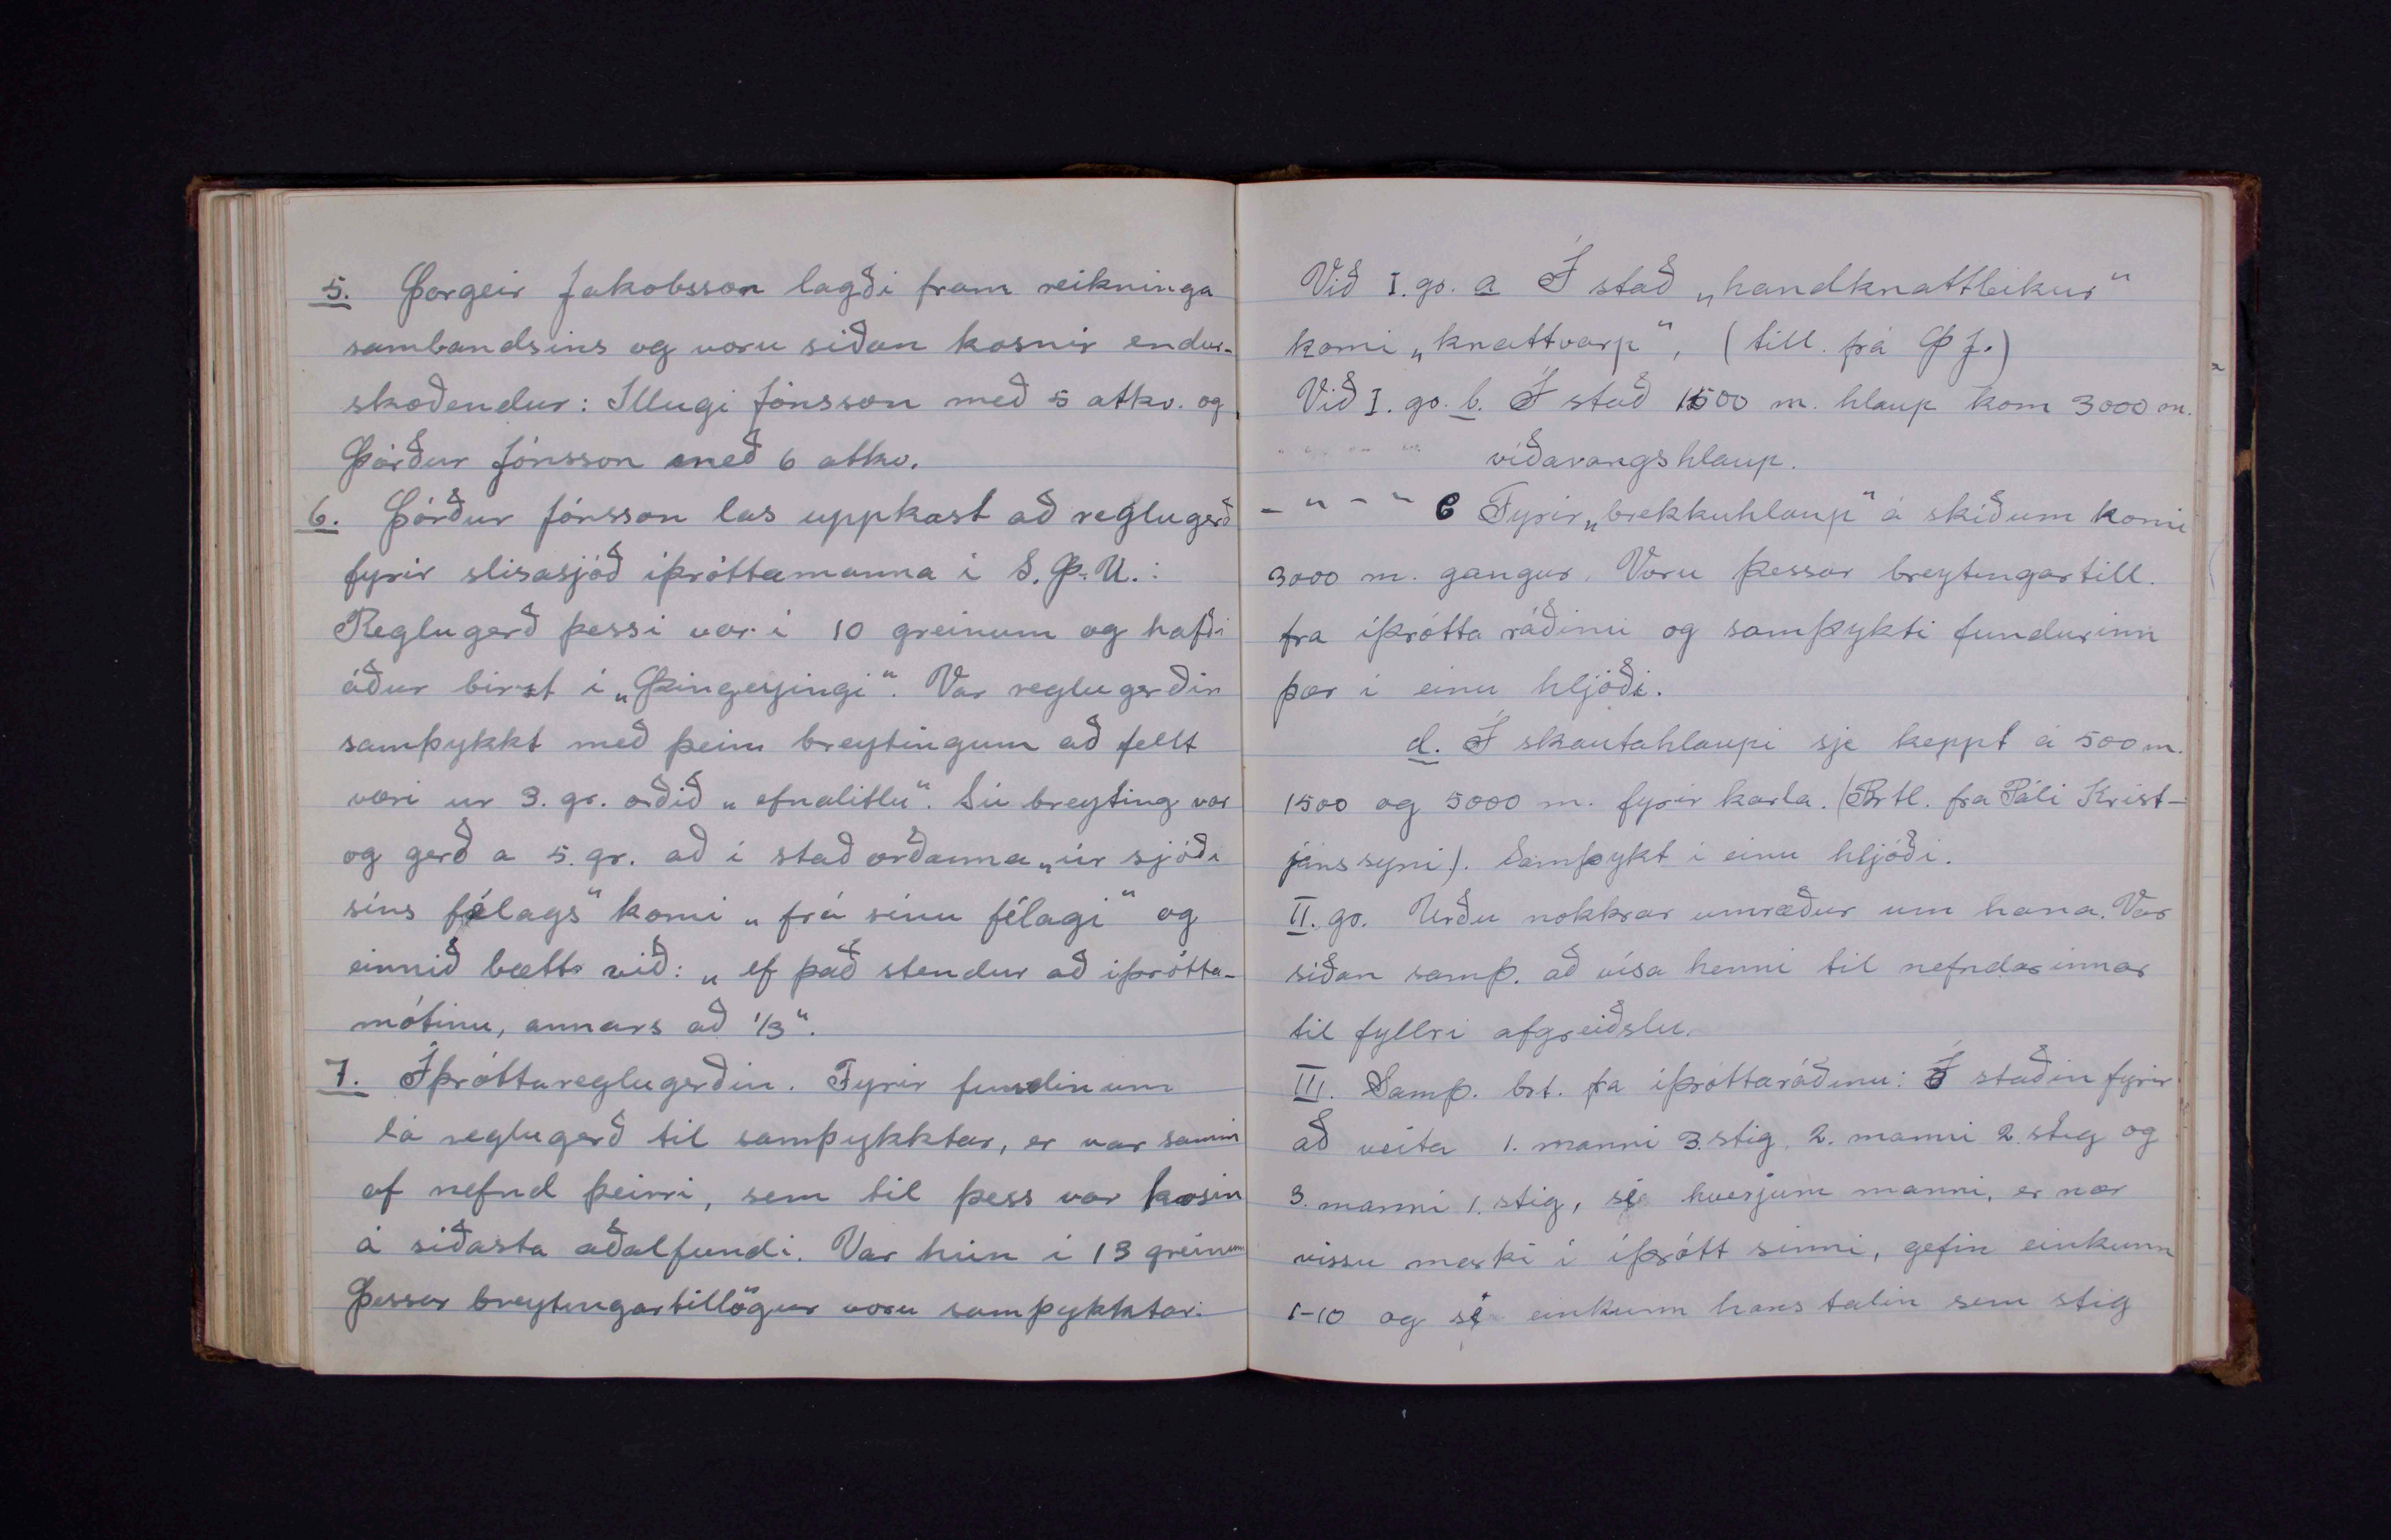 5. Þorgeir Jakobsson lagði fram reikninga
sambandsins og voru siðan kosnir endur-
skoðendur: Illugi Jónsson með 5 atkv. og
Þórður Jónsson með 6 atkv.
6. Þórður Jónsson las uppkast að reglugerð
fyrir slisasjóð iþróttamanna i S.Þ.U.:
Reglugerð þessi var i 10 greinum og hafði
áður birst i „Þingeyingi“. Var reglugerðin
samþykkt með þeim breytingum að fellt
væri ur 3. gr. orðið „efnalitlu“. Sú breyting var
og gerð a 5. gr. að i stað orðanna „úr sjóði
síns félags“ komi „frá sinu félagi“ og
einnið bætt við: „ef það stendur að iþrótta-
mótinu, annars að 1/3“.
7. Íþróttareglugerðin. Fyrir fundinum
lá reglugerð til samþykktar, er var samin
af nefnd þeirri, sem til þess var kosin
á siðasta aðalfundi. Var hún i 13 greinum
Þessar breytingartillögur voru samþykktar:
Við I. gr. a Í stað „handknattleikur“
komi „knattvarp“, (till. frá ÞJ.)
Við I. gr. b. Í stað 1500 m. hlaup kom 3000 m.
viðavangshlaup.
- " - " c Fyrir „brekkuhlaup“ á skiðum komi
3000 m. gangur. Voru þessar breytingartill.
fra iþrótta ráðinu og samþykti fundurinn
þær i einu hljóði.
d. Í skautahlaupi sje keppt á 500 m.
1500 og 5000 m. fyrir karla. (Brtl. fra Páli Krist-
jánssyni). Samþykt i einu hljóði.
II. gr. Urðu nokkrar umræður um hana. Var
siðan samþ. að vísa henni til nefndarinnar
til fyllri afgreiðslu.
III. Samþ. brt. fra iþróttaráðinu: Í staðin fyrir
að veita 1. manni 3. stig, 2. manni 2. stig og
3. manni 1. stig, sé hverjum manni, er nær
vissu marki i iþrótt sinni, gefin einkunn
1-10 og sé einkunn hans talin sem stig